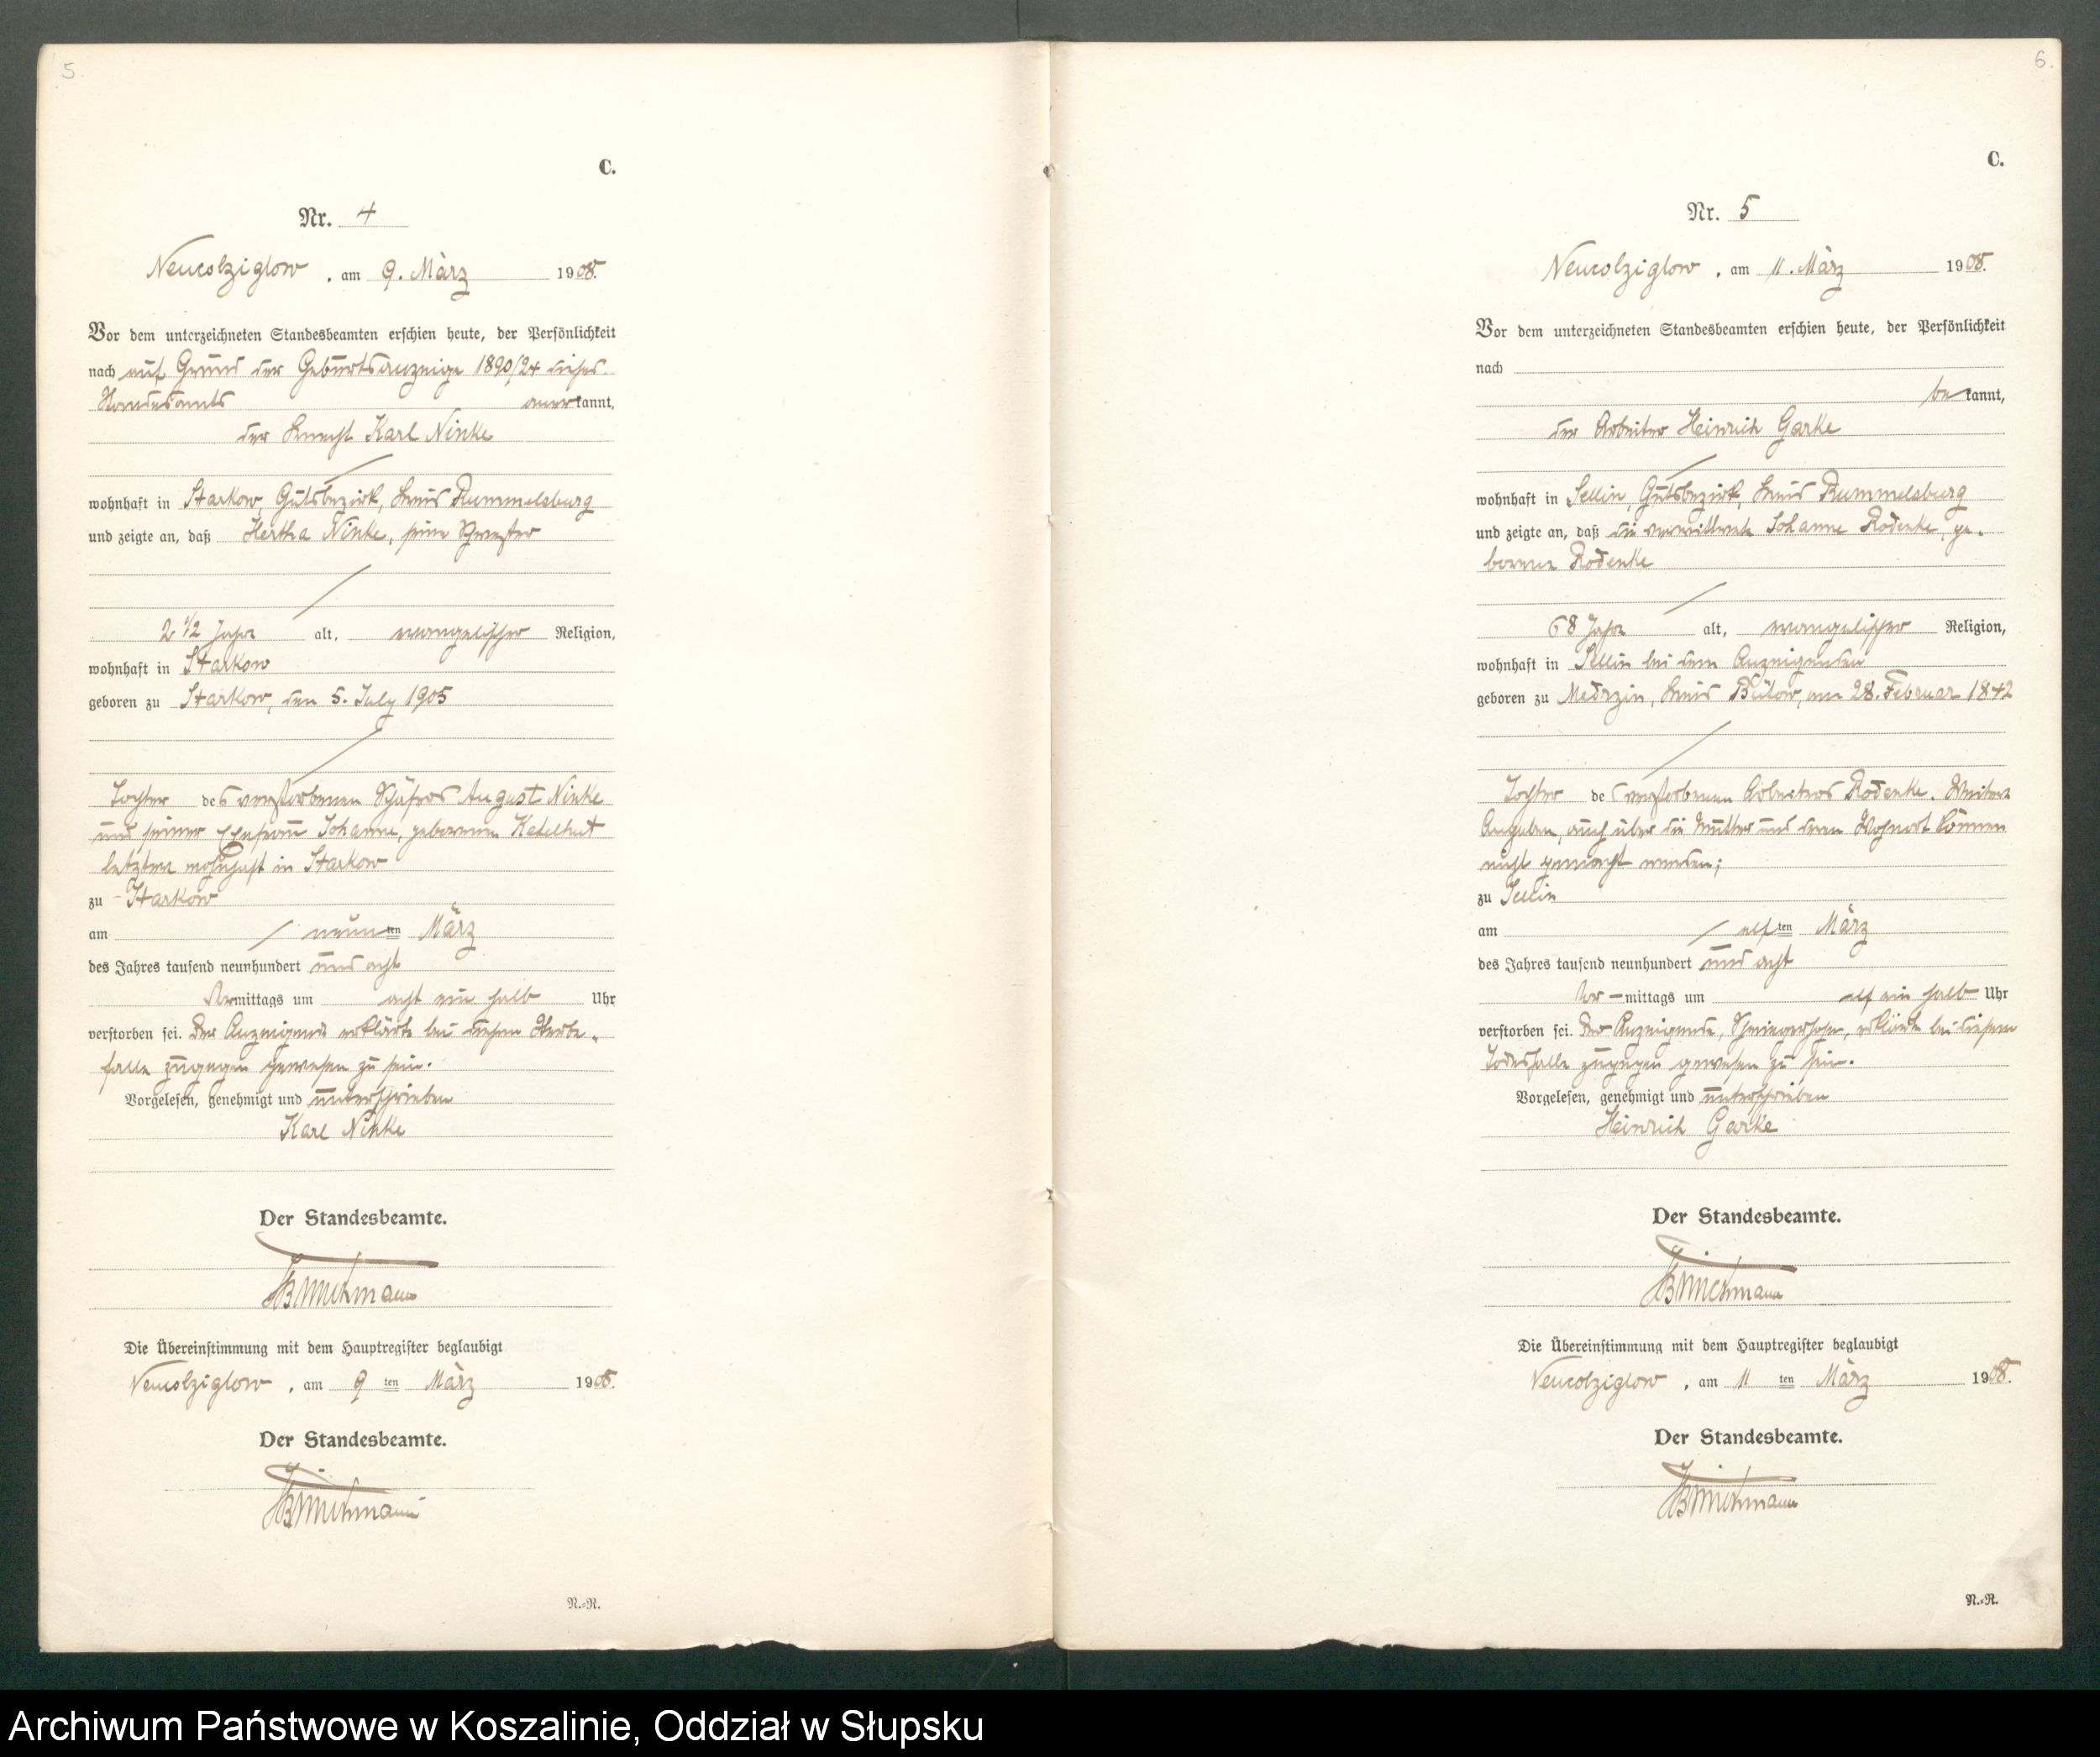 5.
C.
Nr. 4
Neukolziglow, am 9. März 1908.
Vor dem unterzeichneten Standesbeamten erschien heute, der Persönlichkeit
nach auf Grund der Geburtsanzeige 1890/24 dieses
Standesamts anerkannt,
der Knecht Karl Ninke
wohnhaft in Starkow, Gutsbezirk, Kreis Rummelsburg
und zeigte an, daß Hertha Ninke, seine Schwester
2 1/2 Jahre alt, evangelischer Religion,
wohnhaft in Starkow
geboren zu Starkow, den 5. July 1905
Tochter des verstorbenen Schäfers August Ninke
und seiner Ehefrau Johanne, geborenen Katelhut
letztere wohnhaft in Starkow
zu Starkow
am neunten März
des Jahres tausend neunhundert und acht
Vormittags um acht ein halb Uhr
verstorben sei. Der Anzeigende erklärte bei diesem Sterbe-
falle zugegen gewesen zu sein.
Vorgelesen, genehmigt und unterschrieben
Karl Ninke
Der Standesbeamte.
Die Übereinstimmung mit dem Hauptregister beglaubigt
Neukolziglow, am 9ten März 1908.
Der Standesbeamte.
N.-R.
6.
C.
Nr. 5
Neukolziglow, am 11. März 1908.
Vor dem unterzeichneten Standesbeamten erschien heute, der Persönlichkeit
nach
bekannt,
der Arbeiter Heinrich Garke
wohnhaft in Sellin, Gutsbezirk, Kreis Rummelsburg
und zeigte an, daß die verwittwete Johanne Rodenke, ge-
borene Rodenke
68 Jahre alt, evangelischer Religion,
wohnhaft in Sellin bei dem Anzeigenden
geboren zu Medrzin, Kreis Bütow, am 28. Februar 1842
Tochter des verstorbenen Arbeiters Rodenke. Weitere
Angaben, auch über die Mutter und deren Wohnort können
nicht gemacht werden;
zu Sellin
am elften März
des Jahres tausend neunhundert und acht
Vor-mittags um elf ein halb Uhr
verstorben sei. Der Anzeigende, Schwiegersohn, erklärte bei diesem
Todesfalle zugegen gewesen zu sein.
Vorgelesen, genehmigt und unterschrieben
Heinrich Garke
Der Standesbeamte.
Die Übereinstimmung mit dem Hauptregister beglaubigt
Neukolziglow, am 11ten März 1908.
Der Standesbeamte.
N.-R.
Archiwum Państwowe w Koszalinie, Oddział w Słupsku